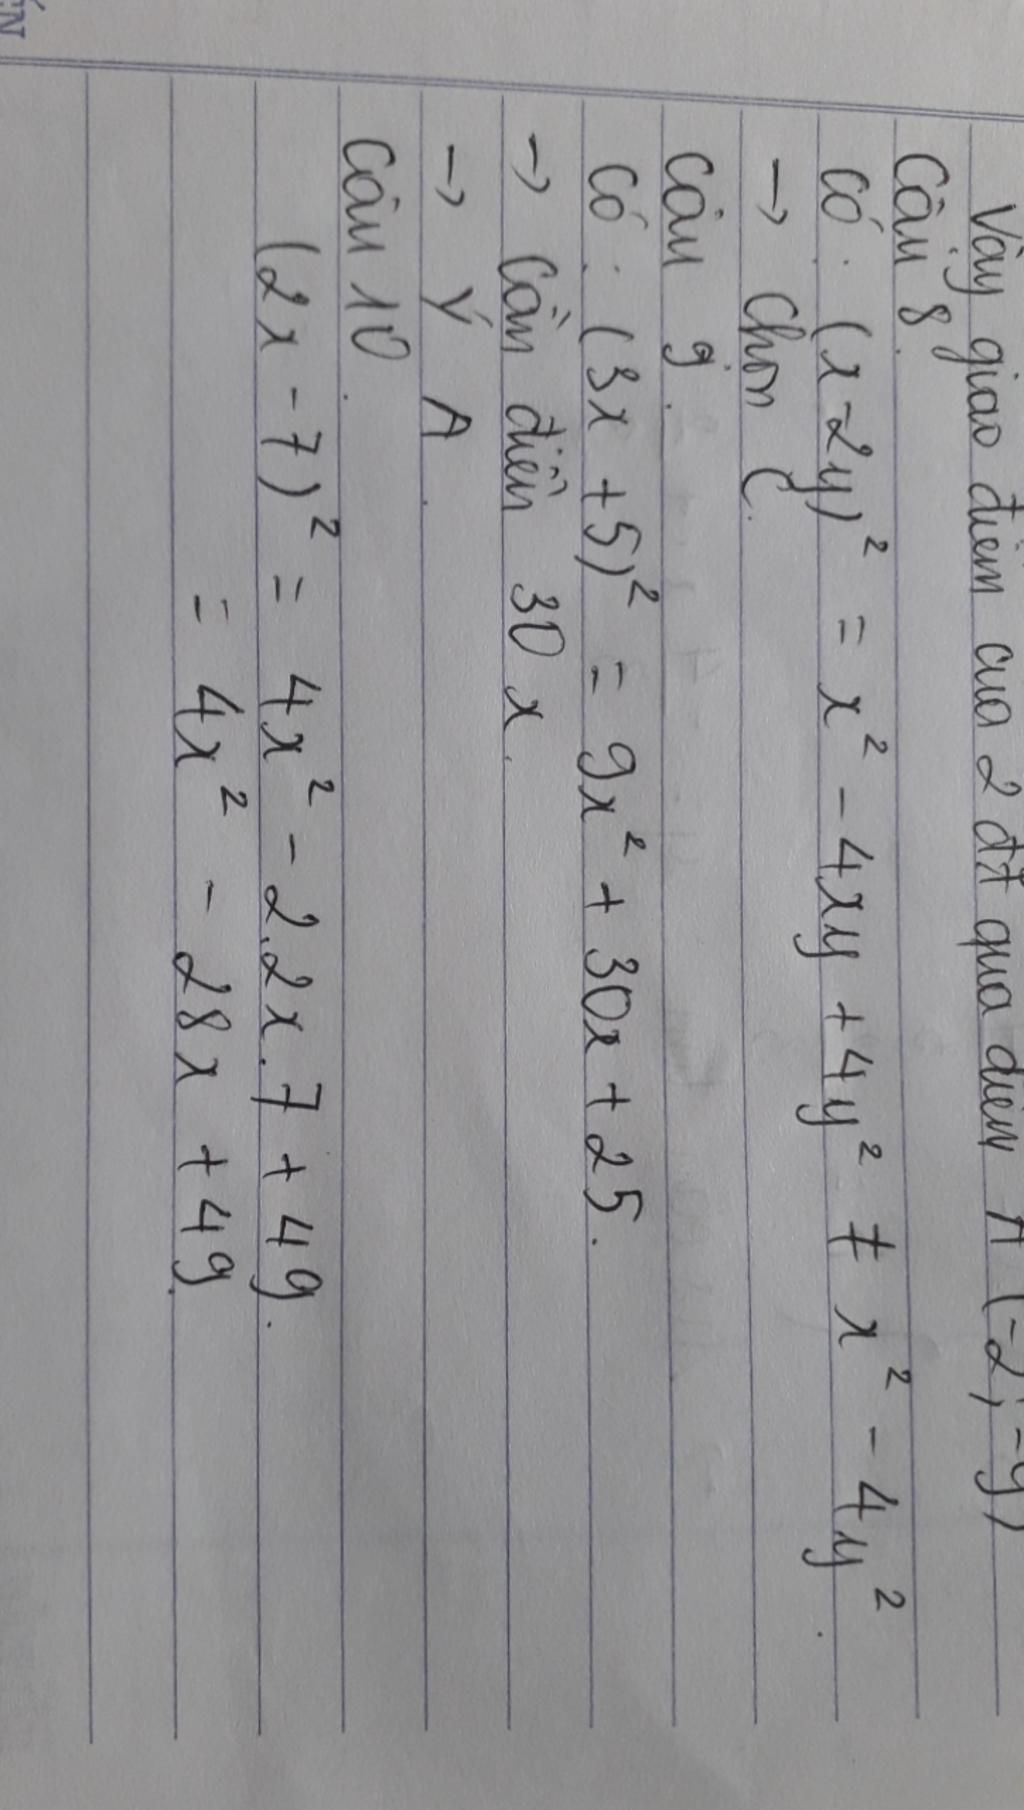 Vậy giao điểm của 2 đt qua điểm A (-2; -9)
Câu 8.
Có: (x-2y)² = x² - 4xy + 4y² ≠ x² - 4y².
→ Chọn C.
Câu 9.
Có: (3x + 5)² = 9x² + 30x + 25.
→ Cần điền 30x.
→ Ý A.
Câu 10.
(2x - 7)² = 4x² - 2.2x.7 + 49.
= 4x² - 28x + 49.